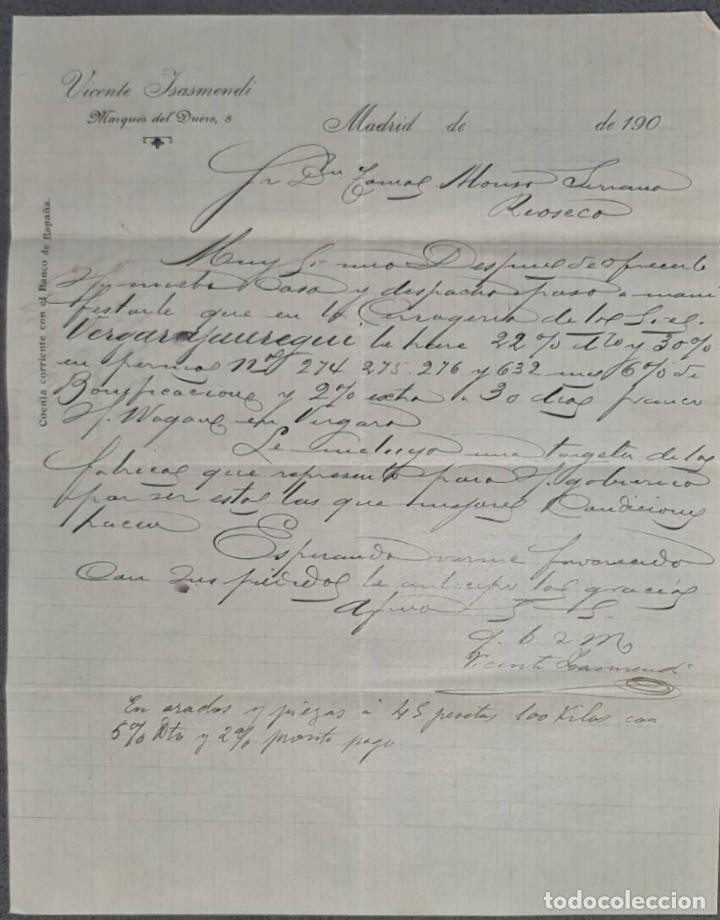 Vicente Isasmendi
Marqués del Duero, 8
Madrid de de 190
Cuenta corriente con el Banco de España.
Sr Dn Tomas Alonso Serrano
Rioseco
Muy Sr mio Despues de ofrecerle
mi nueba Casa y despacho paso a mani
festarle que en la Cerrageria de los Sres
Vergarajauregui le hace 22% dto y 30%
en pernios Nos 274 275 276 y 632 mas 6% de
Bonificacion y 2% extra a 30 dias franco
s/. Wagon en Vergara
Le incluyo una targeta de las
fabricas que represento para s/. gobierno
por ser estas las que mejores Condiciones
hacen
Esperando verme favorecido
con sus pedidos le anticipo las gracias
Afmo S. S.
q. b. s. M
Vicente Isasmendi
En arados y piezas á 45 pesetas 100 Kilos con
5% Dto y 2% pronto pago
todocoleccion